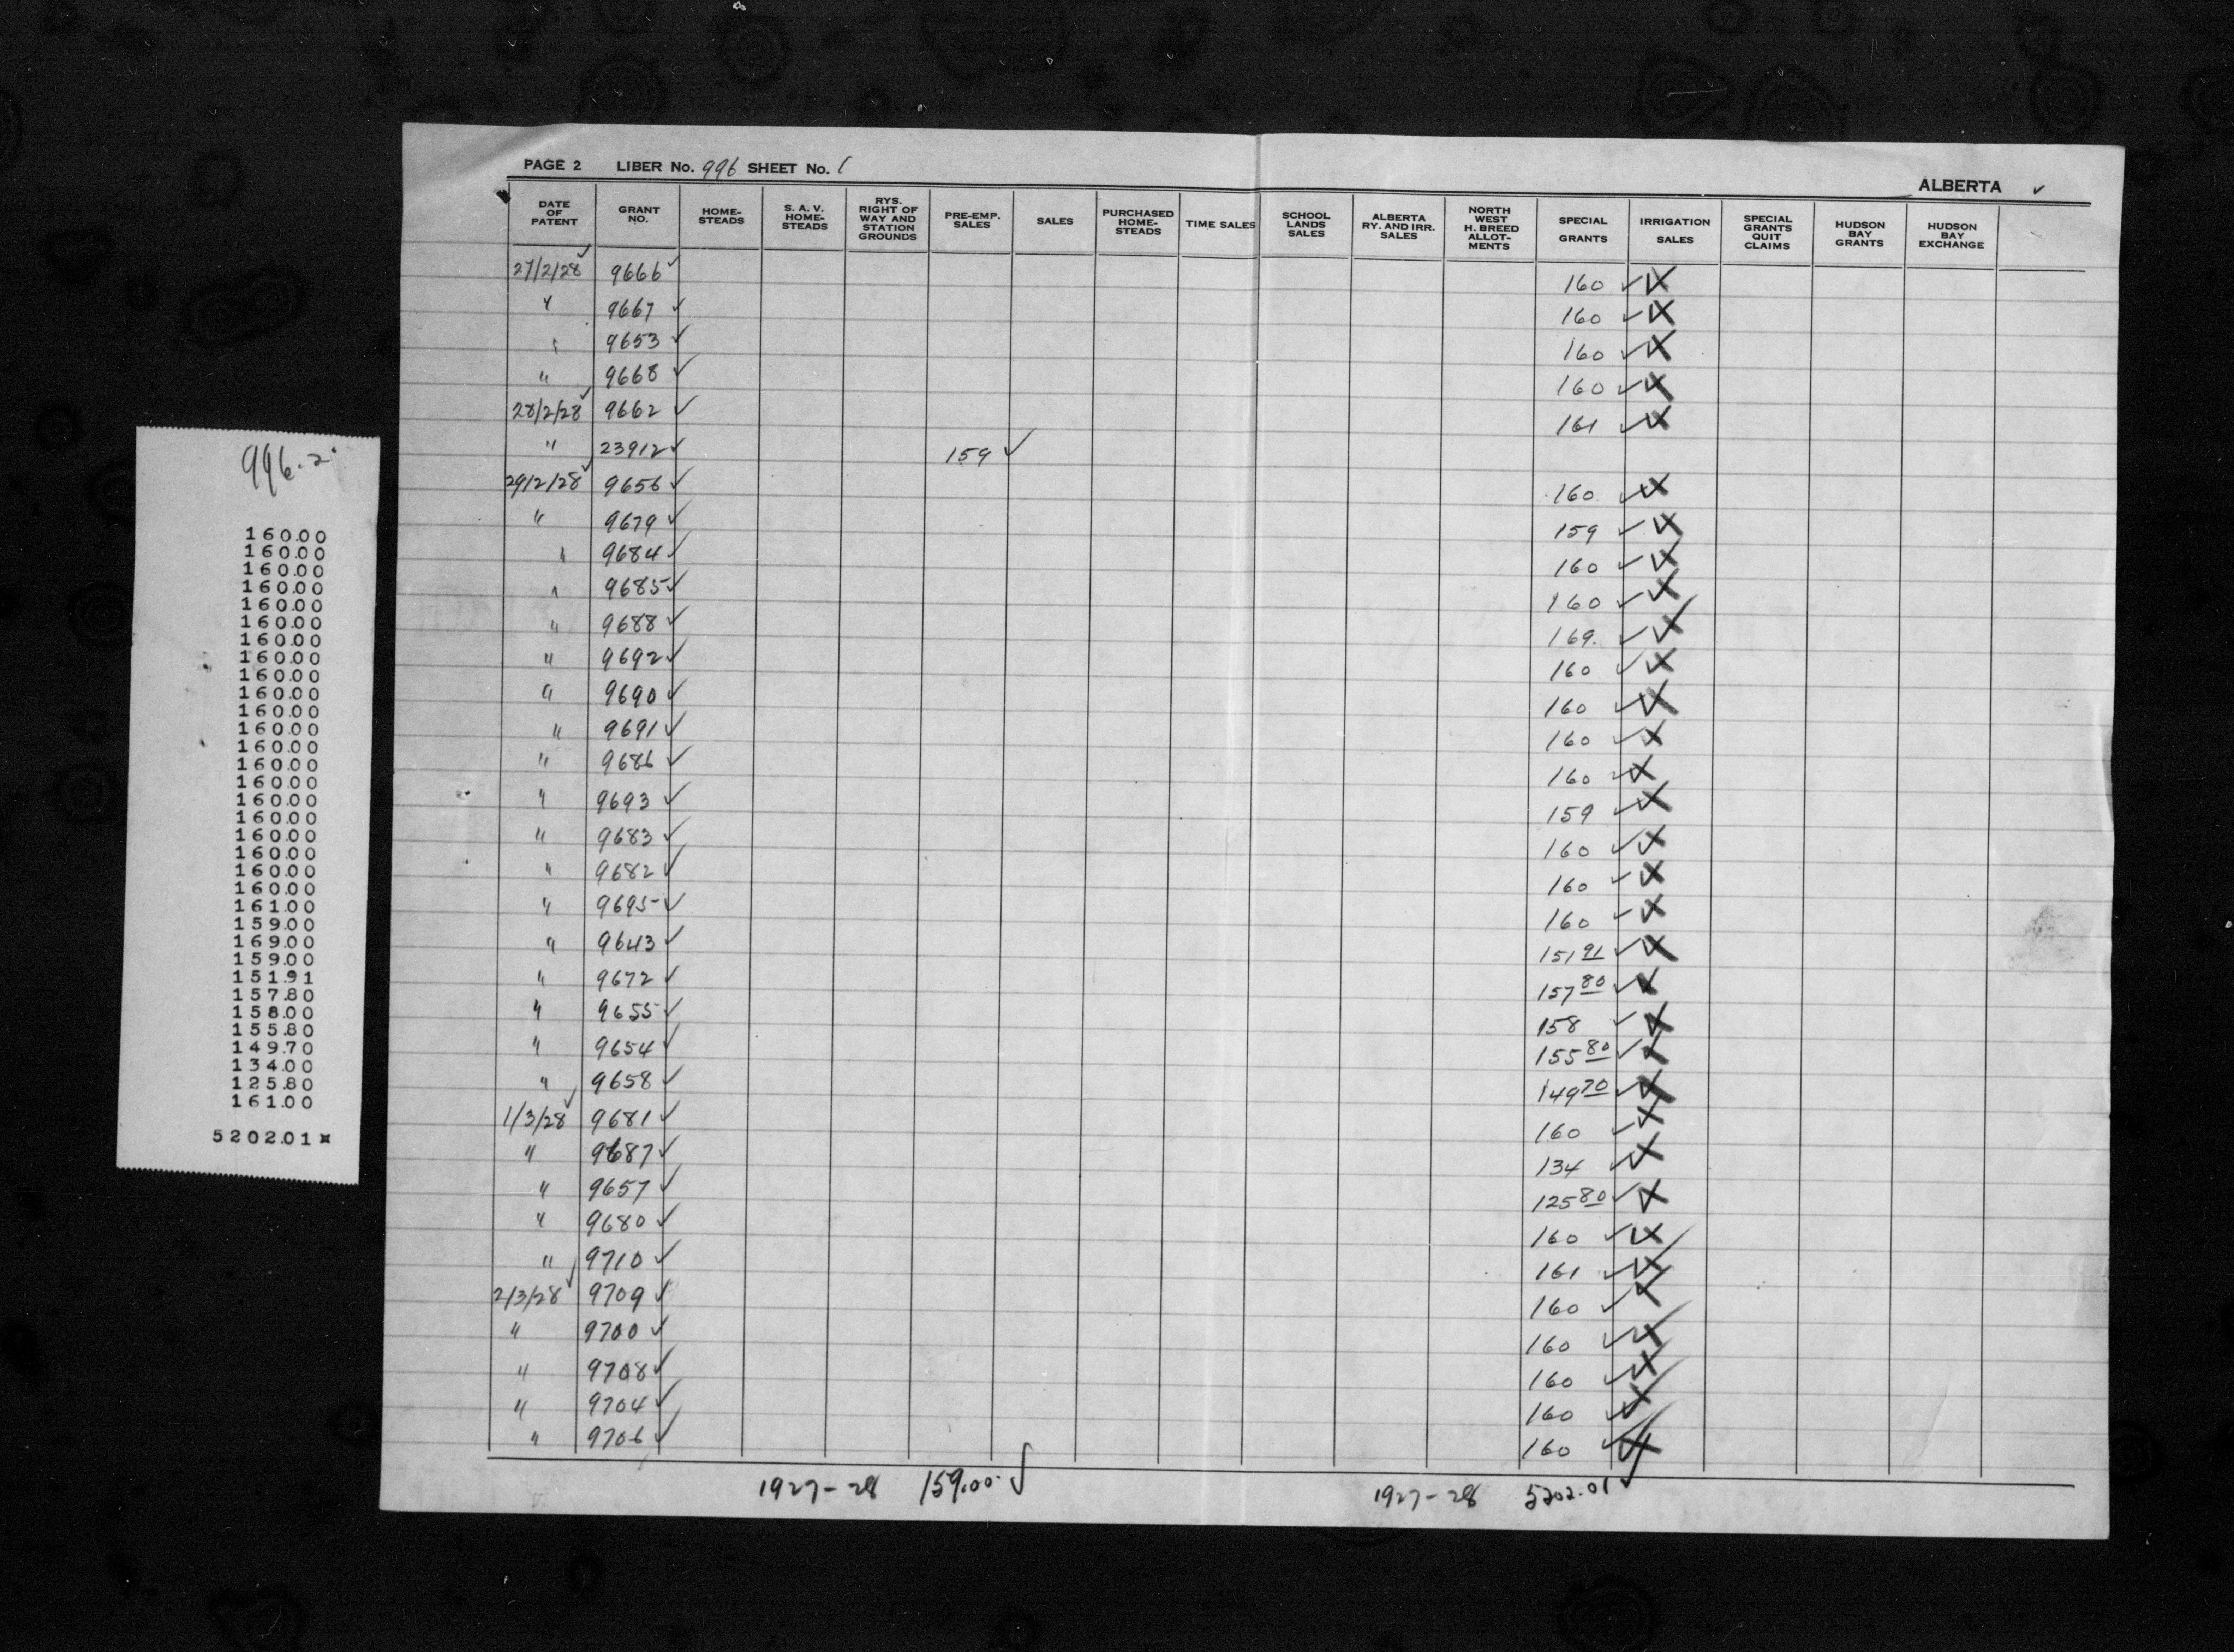 PAGE 2 LIBER No. 996 SHEET No. 1
ALBERTA ✓
DATE OF PATENT | GRANT NO. | HOME-STEADS | S. A. V. HOME-STEADS | RYS. RIGHT OF WAY AND STATION GROUNDS | PRE-EMP. SALES | SALES | PURCHASED HOME-STEADS | TIME SALES | SCHOOL LANDS SALES | ALBERTA RY. AND IRR. SALES | NORTH WEST H. BREED ALLOT-MENTS | SPECIAL GRANTS | IRRIGATION SALES | SPECIAL GRANTS QUIT CLAIMS | HUDSON BAY GRANTS | HUDSON BAY EXCHANGE
27/2/28 9666 160
" 9667 160
" 9653 160
" 9668 160
28/2/28 9662 161
" 23912 159
29/2/28 9656 160
" 9679 159
" 9684 160
" 9685 160
" 9688 169.
" 9692 160
" 9690 160
" 9691 160
" 9686 160
" 9693 159
" 9683 160
" 9682 160
" 9695 160
" 9643 151 91
" 9672 157 80
" 9655 158
" 9654 155 80
" 9658 149 70
1/3/28 9681 160
" 9687 134
" 9657 125 80
" 9680 160
" 9710 161
2/3/28 9709 160
" 9700 160
" 9708 160
" 9704 160
" 9706 160
1927-28 159.00 1927-28 5202.01
996.2
160.00
160.00
160.00
160.00
160.00
160.00
160.00
160.00
160.00
160.00
160.00
160.00
160.00
160.00
160.00
160.00
160.00
160.00
160.00
160.00
160.00
161.00
159.00
169.00
159.00
151.91
157.80
158.00
155.80
149.70
134.00
125.80
161.00
5202.01*